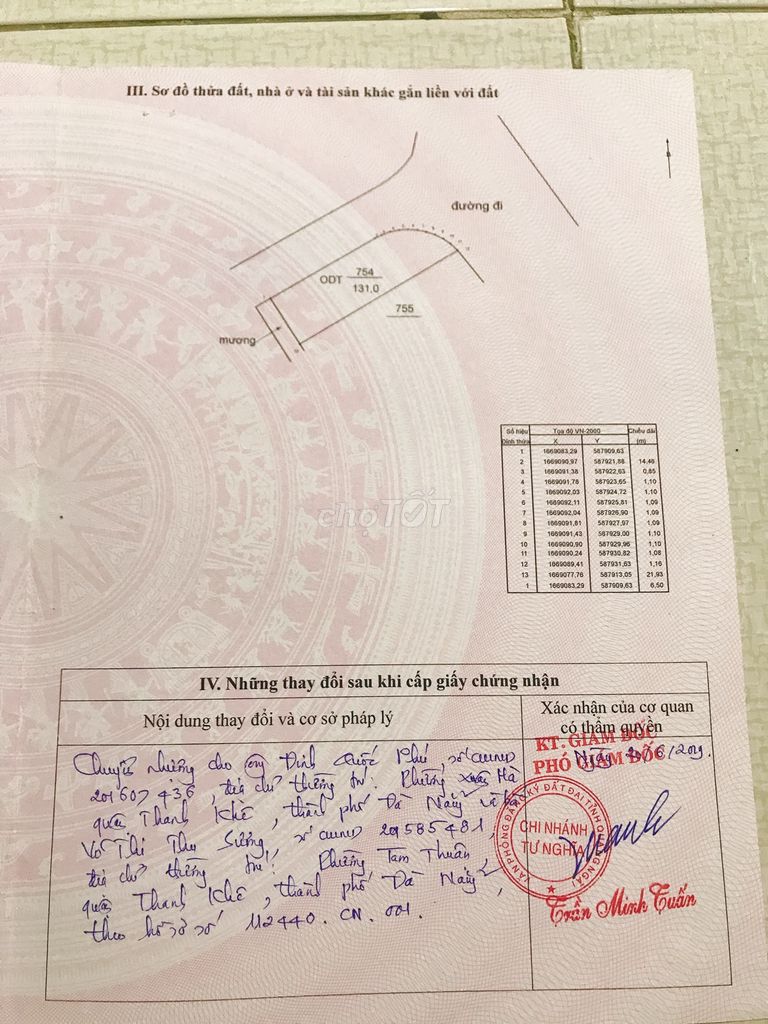 III. Sơ đồ thửa đất, nhà ở và tài sản khác gắn liền với đất
đường đi
ODT 754
131,0
755
mương
chợTỐT
Số hiệu Đỉnh thửa Tọa độ VN-2000 X Y Chiều dài (m)
1 1669083,29 587909,63
2 1669090,97 587921,88 14,46
3 1669091,38 587922,63 0,85
4 1669091,78 587923,65 1,10
5 1669092,03 587924,72 1,10
6 1669092,11 587925,81 1,09
7 1669092,04 587926,90 1,09
8 1669091,81 587927,97 1,09
9 1669091,43 587929,00 1,10
10 1669090,90 587929,96 1,10
11 1669090,24 587930,82 1,08
12 1669089,41 587931,63 1,16
13 1669077,76 587913,05 21,93
1 1669083,29 587909,63 6,50
IV. Những thay đổi sau khi cấp giấy chứng nhận
Nội dung thay đổi và cơ sở pháp lý
Xác nhận của cơ quan
có thẩm quyền
Chuyển nhượng cho ông Đinh Quốc Phú, số CMND
201607436, địa chỉ thường trú: Phường Xuân Hà
quận Thanh Khê, thành phố Đà Nẵng và bà
Võ Thị Thu Sương, số CMND 201585481,
địa chỉ thường trú: Phường Tam Thuận,
quận Thanh Khê, thành phố Đà Nẵng,
theo hồ sơ số 112440.CN.001.
KT. GIÁM ĐỐC
PHÓ GIÁM ĐỐC
VĂN PHÒNG ĐĂNG KÝ ĐẤT ĐAI TỈNH QUẢNG NGÃI
CHI NHÁNH
TƯ NGHĨA
Trần Minh Tuấn